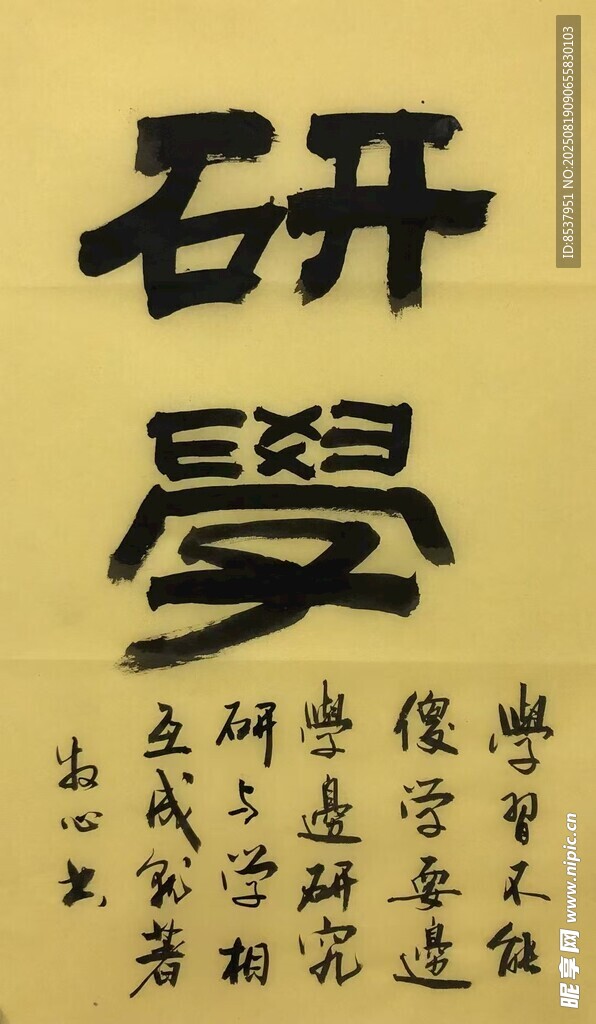 研
學
學習不能
傻学要邊
學邊研究
研与学相
互成就著
牧心书
ID:8537951 NO:20250819090655830103
昵享网 www.nipic.cn